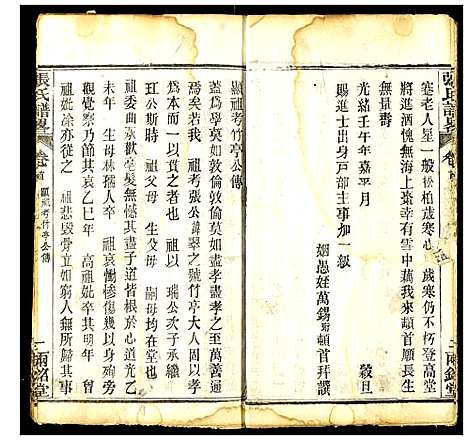 張氏譜畧
卷首
兩銘堂
塞老人星一般松柏歲寒心　歲寒仍不老登高堂
將進酒愧無海上棗幸有雲中藕我來頓首願長生
無量壽
光緒壬午年嘉平月　穀旦
賜進士出身戶部主事加一級
姻愚姪萬錫珩頓首拜譔
顯祖考竹亭公傳
蓋爲學莫如敦倫敦倫莫如盡孝盡孝之至而萬善通
焉矣若我　顯祖考張公諱翠之號竹亭大人者以耕讀
爲本而一子也　祖以　瑞公次子承繼
玨公斯時　祖父母　生父母　嗣母均在堂也
祖委曲承歡常髮無憾其盡子道皆根於心道光乙
未年　生母林孺人卒　祖哀慟慘傷幾以身殉旁
觀覺察乃節其哀乙巳年　高祖妣卒其明年　曾
祖妣涂亦從之　祖悲毀骨立如窮人無所歸其事
張氏譜畧
卷首
顯祖考竹亭公傳
一
兩銘堂